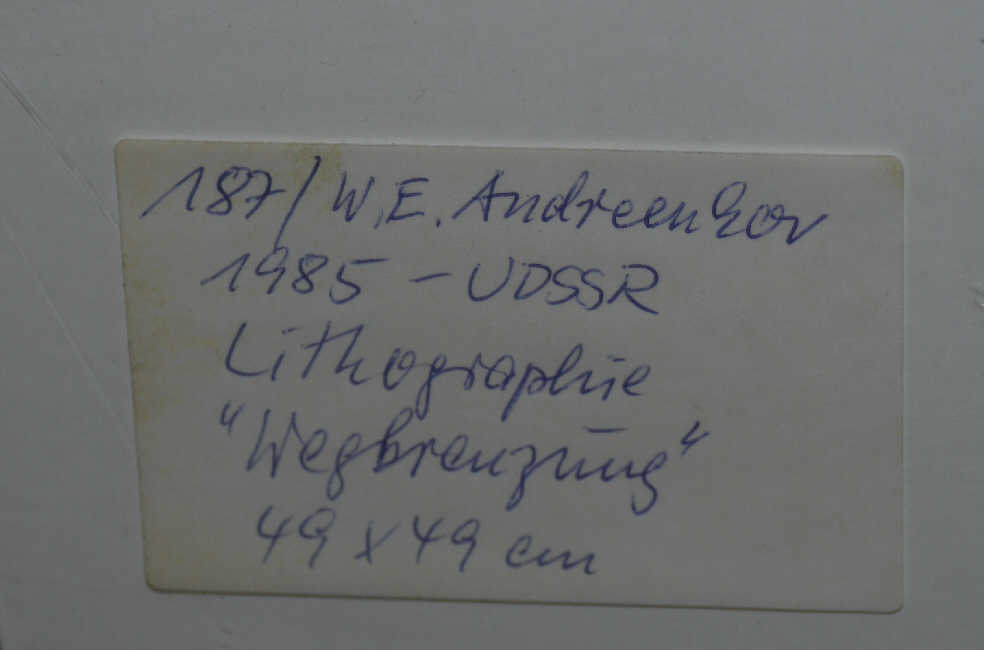 187/ W. E. Andreenkov
1985 - UDSSR
Lithographie
"Wegkreuzung"
49 x 49 cm